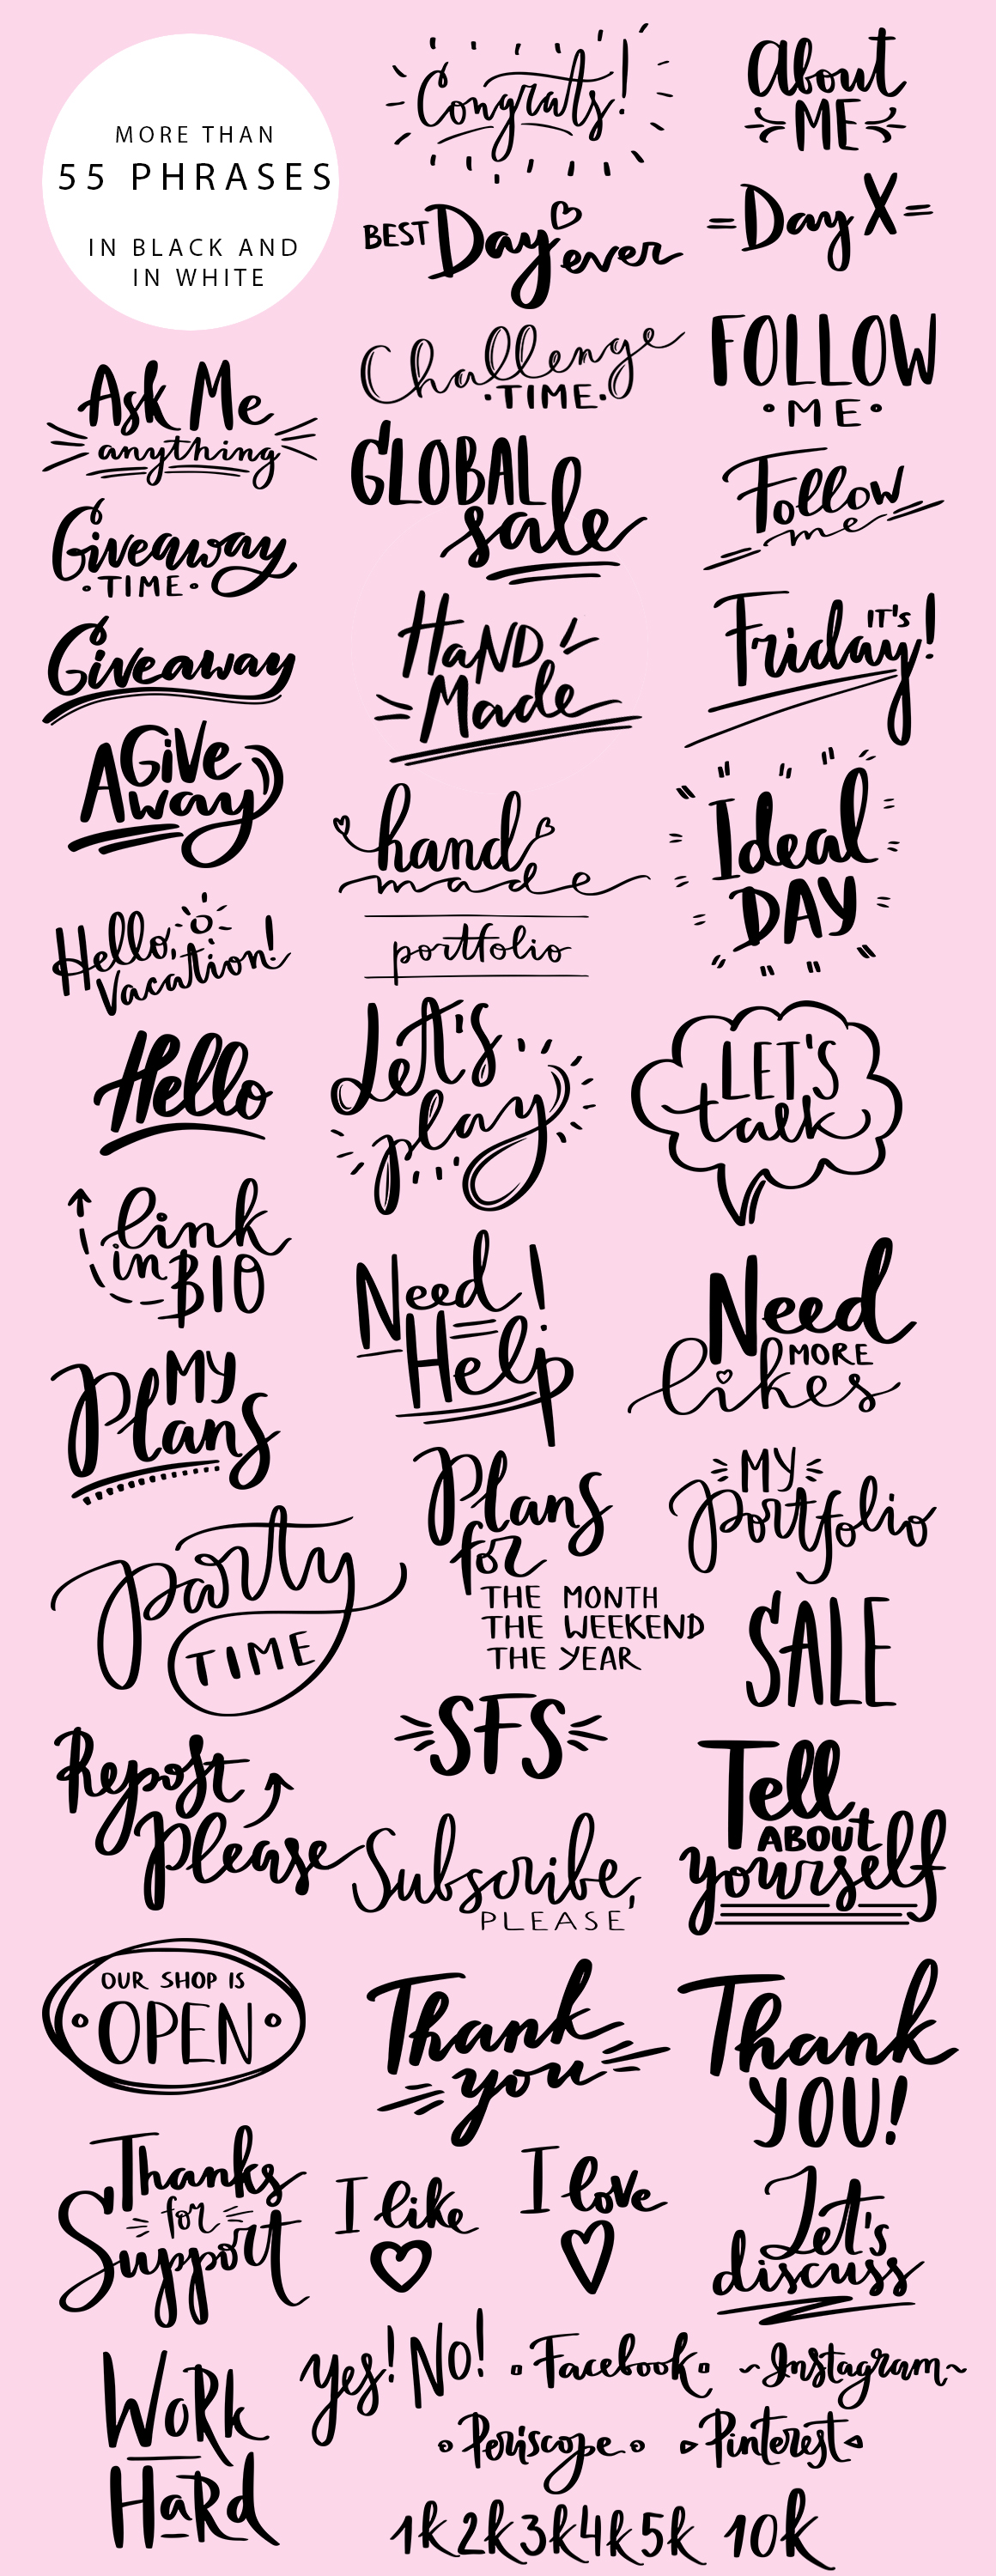 MORE THAN
55 PHRASES
IN BLACK AND
IN WHITE
Congrats!
About
ME
BEST Day ever
=Day X=
Challenge
TIME
FOLLOW
ME
Ask Me
anything
GLOBAL
sale
Follow
me
Giveaway
TIME
HaND
Made
IT'S
Friday!
Giveaway
A GiVe
way
hand
made
Ideal
DAY
Hello,
Vacation!
portfolio
Hello
Let's
play
LET'S
talk
link
in BIO
Need!
Help
Need
MORE
likes
MY
Plans
Plans
for
THE MONTH
THE WEEKEND
THE YEAR
MY
portfolio
party
TIME
SALE
SFS
Repost
Please
Subscribe,
PLEASE
Tell
ABOUT
yourself
OUR SHOP IS
OPEN
Thank
you
Thank
YOU!
Thanks
for
Support
I like
I love
Let's
discuss
WoRk
HaRd
yes! NO! Facebook ~Instagram~
Periscope Pinterest
1k 2k 3k 4k 5k 10k